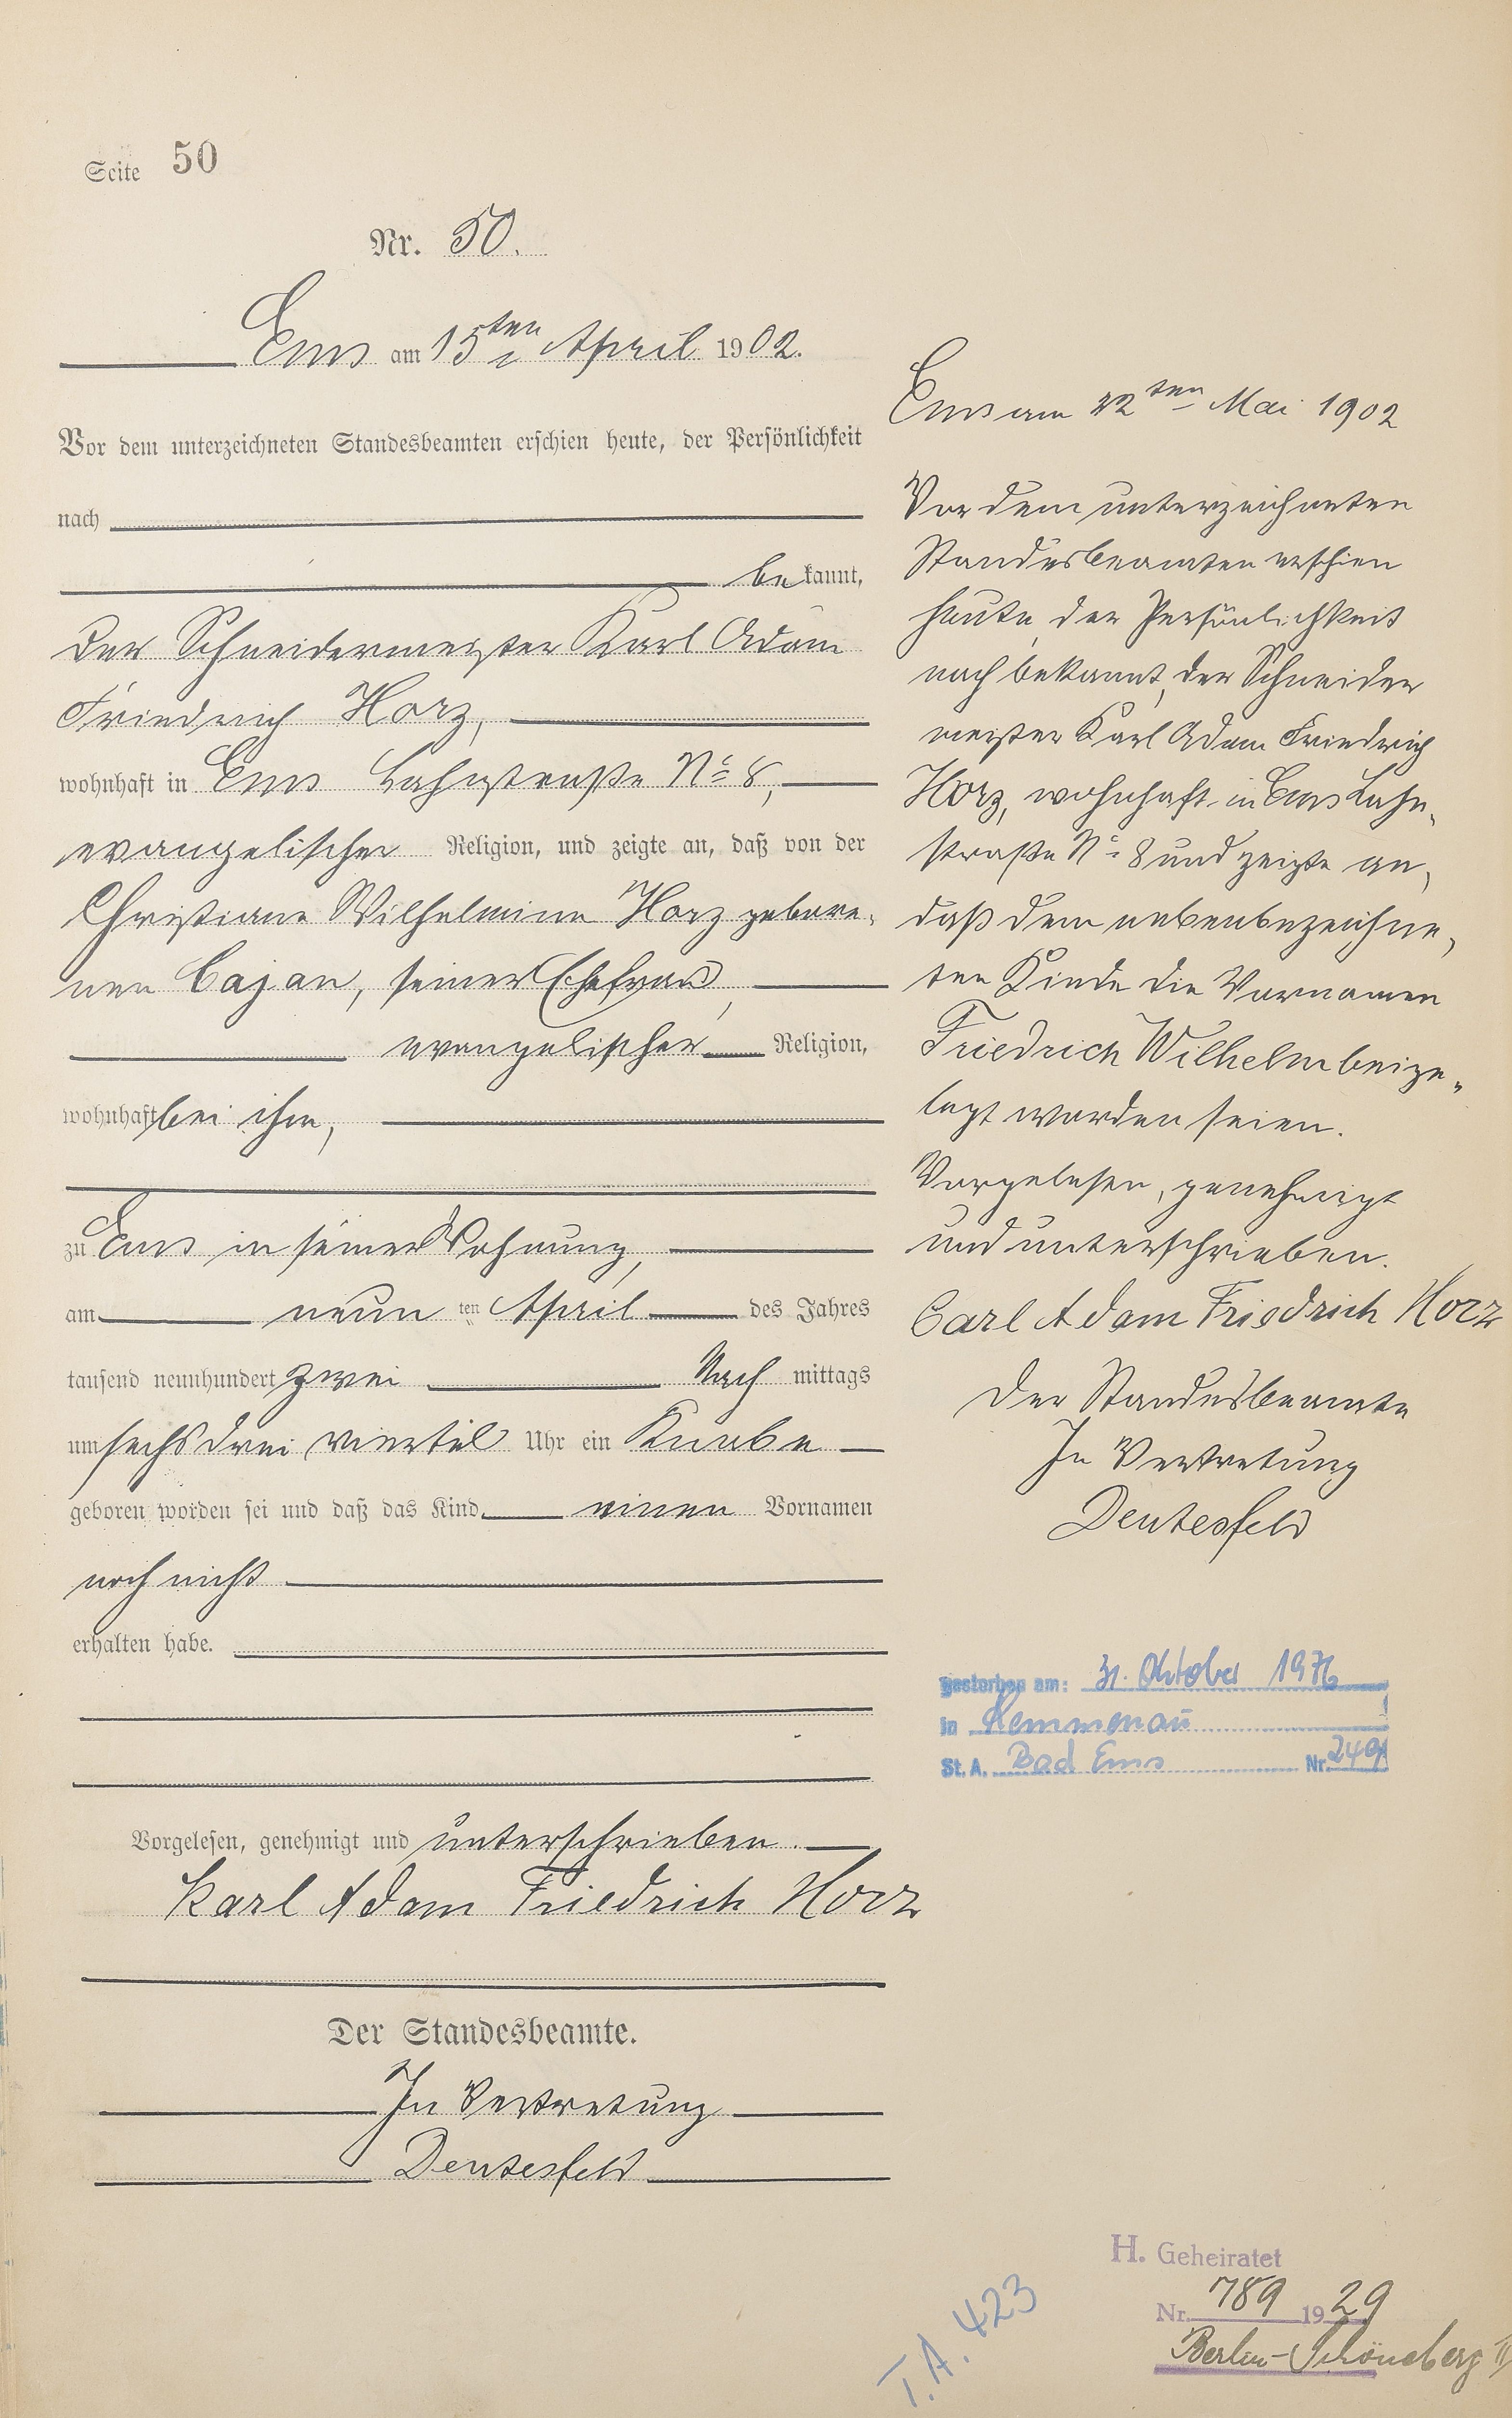 Seite 50
Nr. 50.
Ems am 15ten April 1902.
Vor dem unterzeichneten Standesbeamten erschien heute, der Persönlichkeit
nach
bekannt,
der Schneidermeister Karl Adam
Friedrich Horz,
wohnhaft in Ems Lahnstraße No 8,
evangelischer Religion, und zeigte an, daß von der
Christiane Wilhelmine Horz gebore-
nen Cajan, seiner Ehefrau,
evangelischer Religion,
wohnhaft bei ihm,
zu Ems in seiner Wohnung,
am neun ten April des Jahres
tausend neunhundert zwei Nach mittags
um sechs drei viertel Uhr ein Knabe
geboren worden sei und daß das Kind einen Vornamen
noch nicht
erhalten habe.
Vorgelesen, genehmigt und unterschrieben.
Karl Adam Friedrich Horz
Der Standesbeamte.
In Vertretung
Deutesfeld
Ems am 22ten Mai 1902
Vor dem unterzeichneten
Standesbeamten erschien
heute, der Persönlichkeit
nach bekannt, der Schneider
meister Karl Adam Friedrich
Horz, wohnhaft in Ems Lahn-
straße No 8 und zeigte an,
daß dem nebenbezeichne-
ten Kinde die Vornamen
Friedrich Wilhelm beige-
legt worden seien.
Vorgelesen, genehmigt
und unterschrieben.
Carl Adam Friedrich Horz
Der Standesbeamte
In Vertretung
Deutesfeld
gestorben am: 31. Oktober 1976
in Kemmenau
St. A. Bad Ems Nr. 249
H. Geheiratet
Nr. 789 1929
Berlin-Schöneberg II
T.A. 423